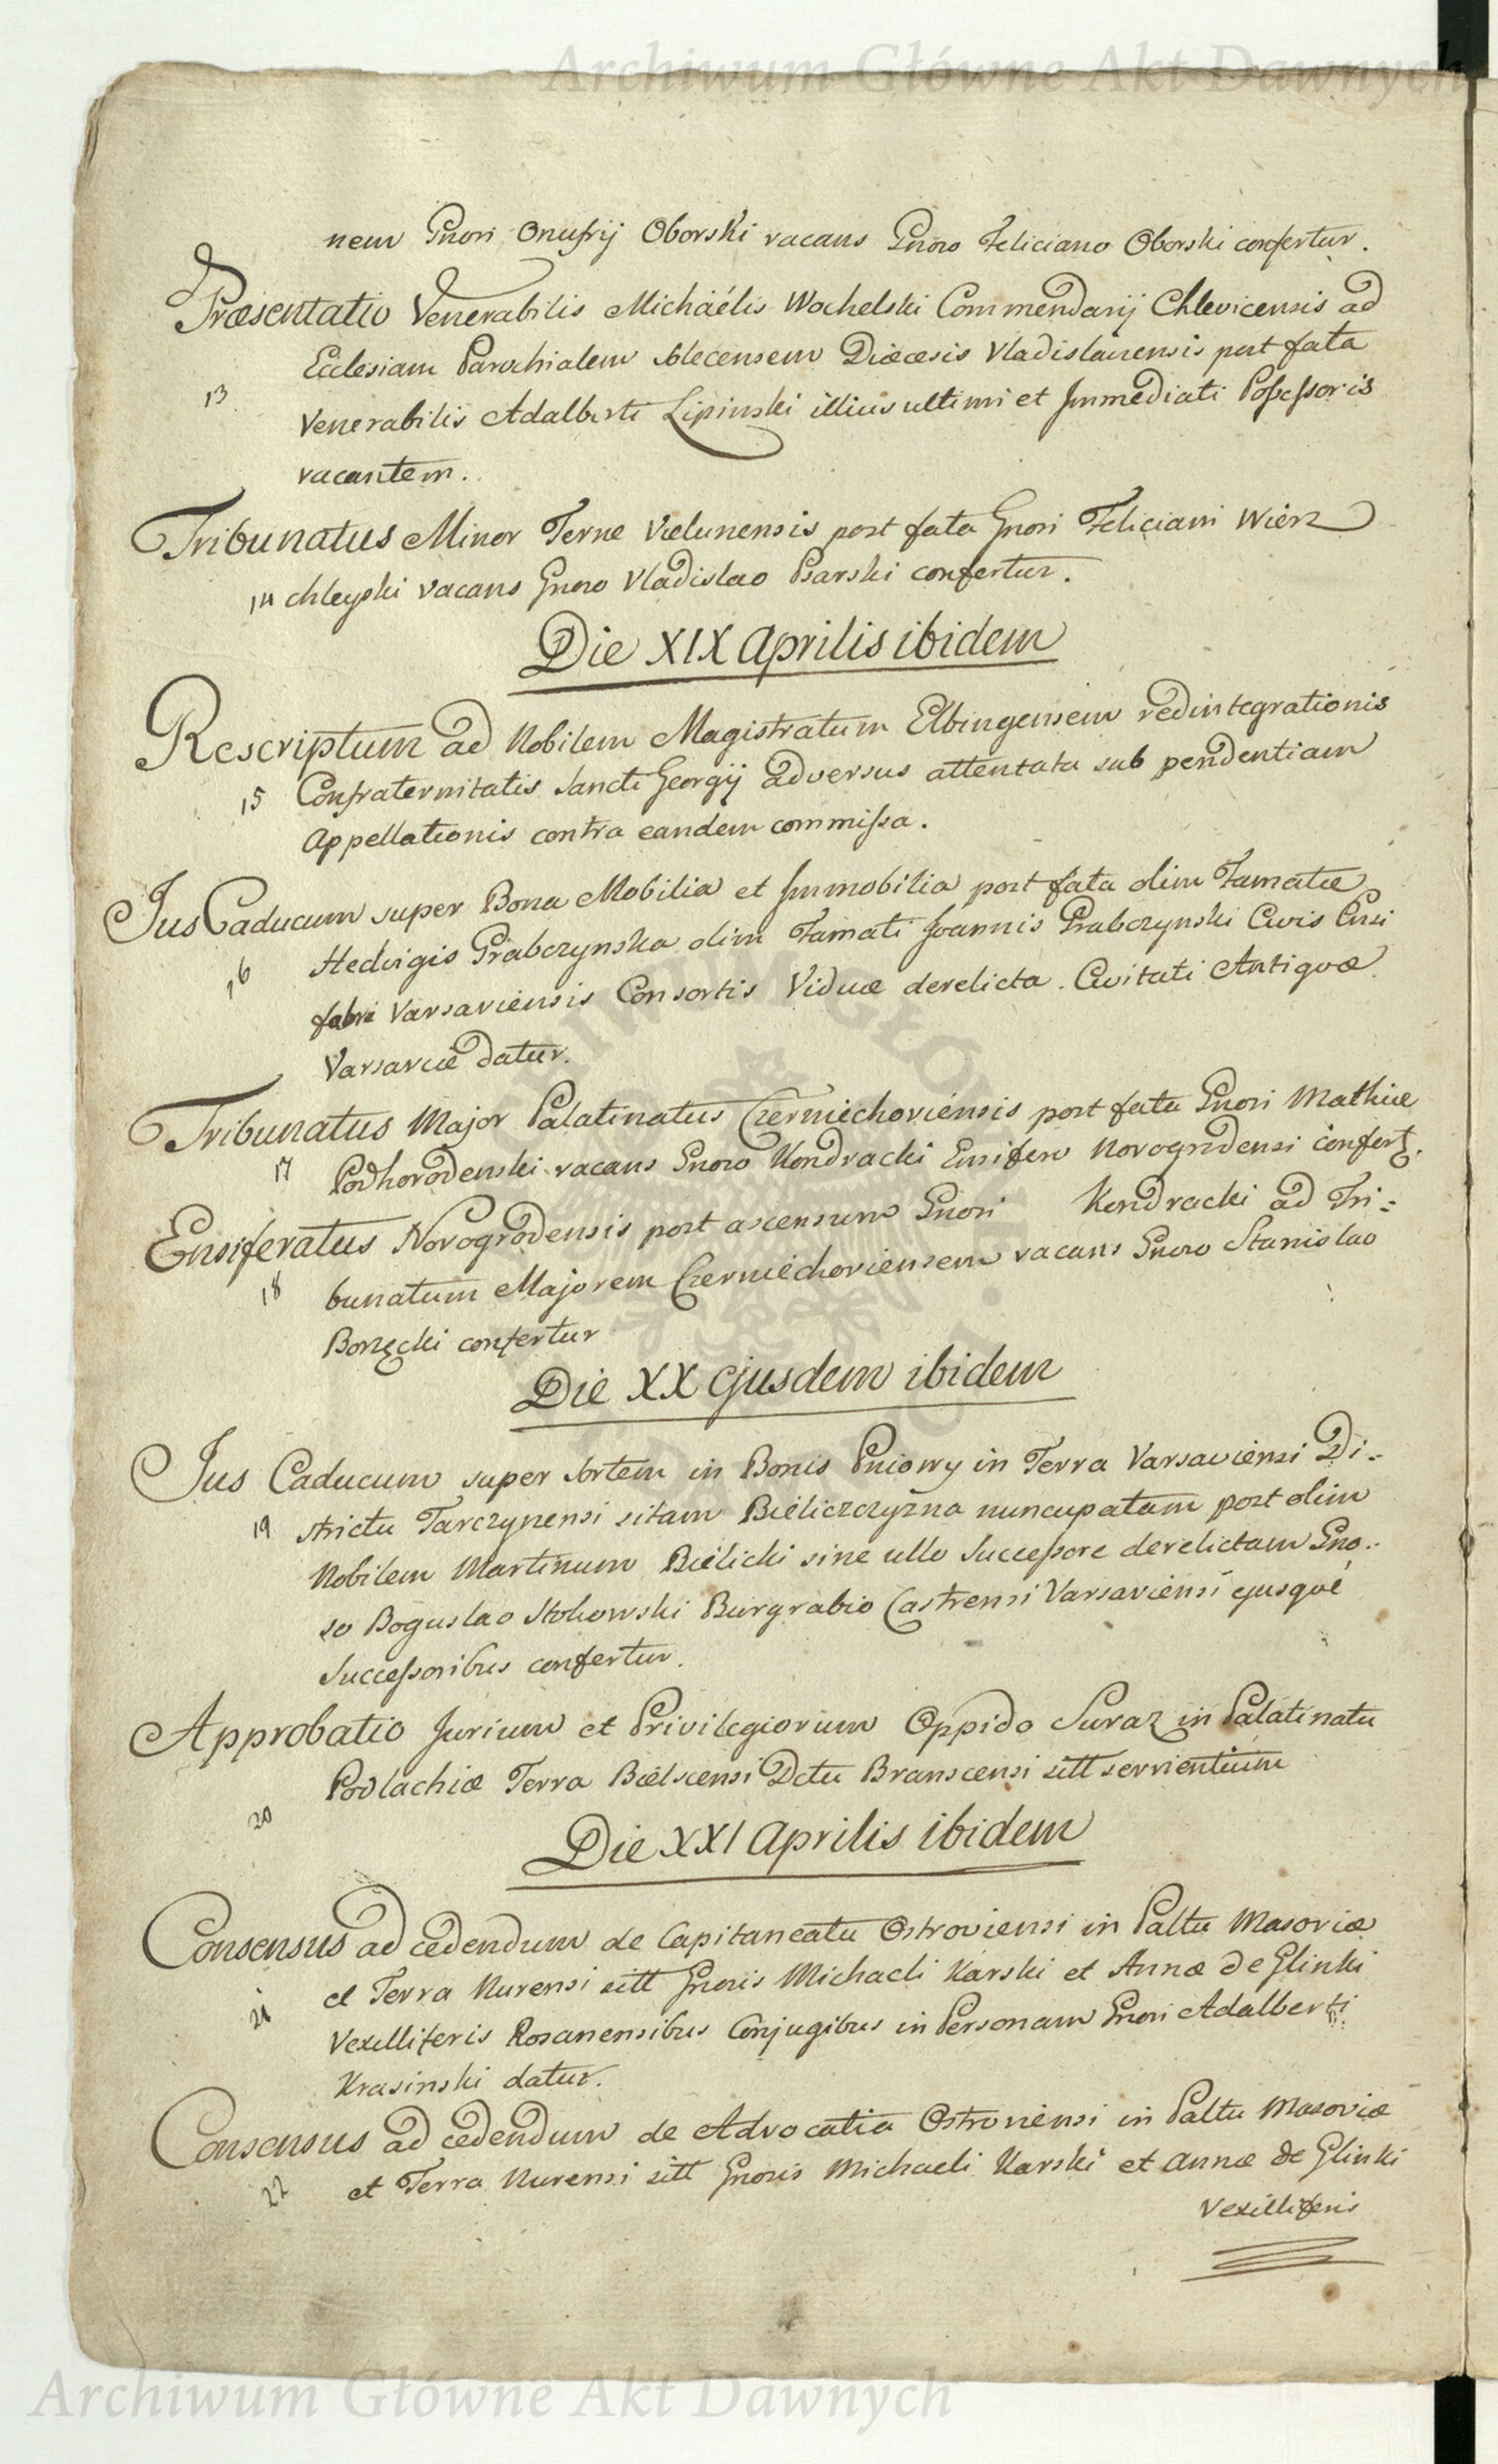 Archiwum Główne Akt Dawnych
nem Gnori Onufrij Oborski vacans Gnoro Feliciano Oborski confertur.
Præsentatio Venerabilis Michaélis Wochelski Commendarij Chlevicensis ad
Ecclesiam Parochialem Diœcesis Vladislaviensis post fata
13 Venerabilis Adalberti Lipinski illius ultimi et Immediati Possessoris
vacantem.
Tribunatus Minor Terræ Vielunensis post fata Gnori Feliciani Wierz
14 chleyski vacans Gnoro Vladislao Psarski confertur.
Die XIX Aprilis ibidem
Rescriptum ad Nobilem Magistratum Elbingensem redintegrationis
15 Confraternitatis Sancti Georgij adversus attentata sub pendentiam
Appellationis contra eandem commissa.
Jus Caducum super Bona Mobilia et Immobilia post fata olim Famatæ
16 Hedvigis Grabczynska olim Famati Joannis Grabczynski Civis Ensi
fabri Varsaviensis Consortis Viduæ derelicta. Civitati Antiquæ
Varsaviæ datur.
Tribunatus Major Palatinatus Czerniechoviensis post fata Gnori Mathiæ
17 Podhorodenski vacans Gnoro Kondracki Ensifero Novogrodensi confert.
Ensiferatus Novogrodensis post ascensum Gnori Kondracki ad Tri-
18 bunatum Majorem Czerniechoviensem vacans Gnoro Stanislao
Borzęcki confertur
Die XX Ejusdem ibidem
Jus Caducum super Sortem in Bonis Pniowy in Terra Varsaviensi Di-
19 strictu Tarczynensi sitam Bieliczczyzna nuncupatam post olim
Nobilem Martinum Bielicki sine ullo Successore derelictam Gno-
so Boguslao Stokowski Burgrabio Castrensi Varsaviensi ejusque
Successoribus confertur.
Approbatio Jurium et Privilegiorum Oppido Suraz in Palatinatu
Podlachiæ Terra Bielscensi Dctu Branscensi sitt servientium
20
Die XXI Aprilis ibidem
Consensus ad cedendum de Capitaneatu Ostroviensi in Paltu Masoviæ
21 et Terra Nurensi sitt Gnoris Michaeli Karski et Annæ de Glinki
Vexilliferis Rosanensibus Conjugibus in Personam Gnori Adalberti
Krasinski datur.
Consensus ad cedendum de Advocatia Ostroviensi in Paltu Masoviæ
22 et Terra Nurensi sitt Gnoris Michaeli Karski et Annæ de Glinki
Vexilliferis
Archiwum Główne Akt Dawnych